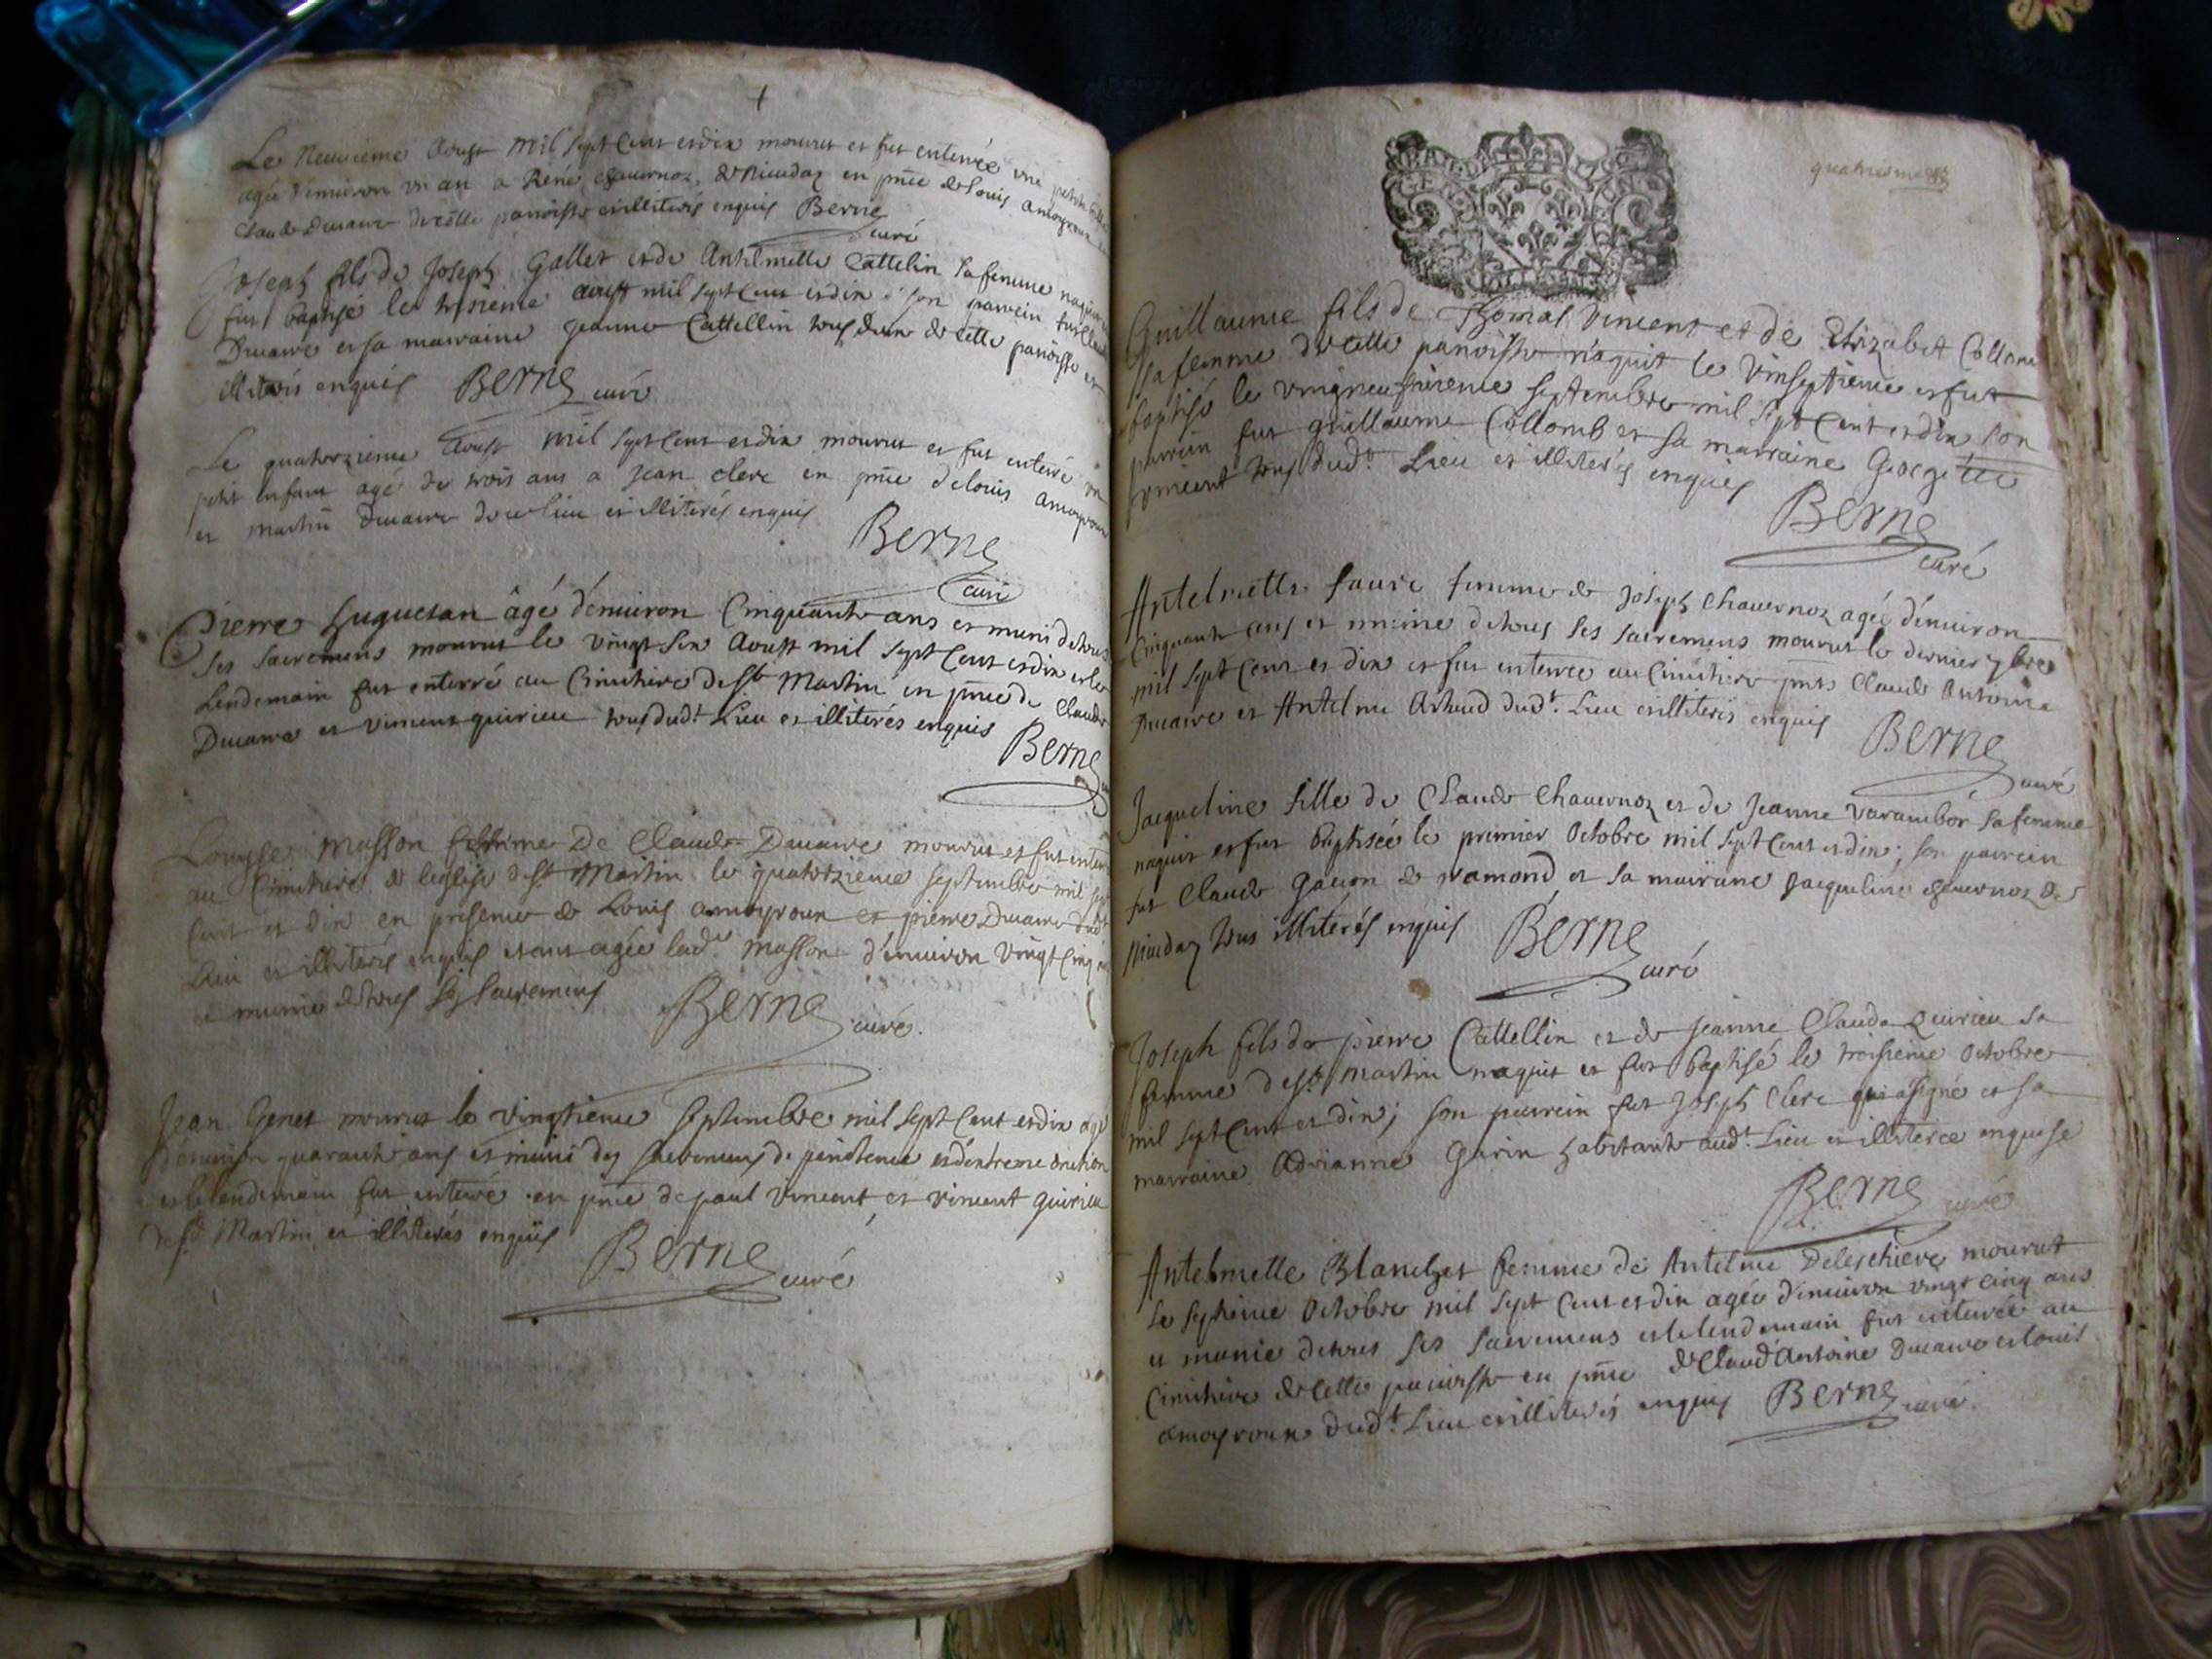 Le Neuuieme Aoust mil sept Cent et dix mourut et fut enterrée une petite fille
agée d'enuiron un an a René chauernoz, de Nieudaz en pnce de Louis amoyroux et
Claude Ducaire de cette paroisse et illiterés enquis Berne
curé
Joseph fils de Joseph Gallet et de Antelmette Cattelin sa femme naquit et
fut baptisé le troisieme aoust mil sept Cent et dix; son parrein fut Claude
Ducaire et sa marraine jeanne Cattellin tous deux de cette paroisse et
illiterés enquis Berne curé
Le quatorzieme Aoust mil sept Cent et dix mourut et fut enterré un
petit enfant agé de trois ans a jean clerc en pnce de louis amoyroux
et martin Ducaire de ce lieu et illiterés enquis Berne
curé
Pierre huguetan âgé d'enuiron Cinquante ans et muni de tous
ses sacremens mourut le vingt six Aoust mil sept Cent et dix et le
Lendemain fut enterré au Cimitiere de St Martin en pnce de Claude
Ducaire et vincent quirieu tous dudt Lieu et illiterés enquis Berne
Louyse Masson femme De Claude Ducaire mourut et fut enterrée
au Cimitiere de leglise de St Martin le quatorzieme septembre mil sept
Cent et dix en presence de Louis amoyroux et pierre Ducaire dudt
Lieu et illiterés enquis etant agée lade Masson d'enuiron vingt Cinq ans
et munie de tous ses sacremens Berne curé.
Jean Genet mourut le vingtieme septembre mil sept Cent et dix agé
d'enuiron quarante ans et muni des sacremens de penitence et d'extreme onction
et le lendemain fut enterré en pnce de paul vincent et vincent quirieu
de St Martin et illiterés enquis Berne
curé
quatriesme
Guillaume fils de Thomas Vincent et de Elizabet Collomb
sa femme de cette paroisse naquit le vinseptieme et fut
baptisé le vingneufuieme septembre mil sept Cent et dix son
parrein fut guillaume Collomb et sa marraine Georgette
tous dudt. Lieu et illiterés enquis
Berne
curé
Antelmette faure femme de Joseph Chauernoz agée d'enuiron
Cinquante ans et munie de tous ses sacremens mourut le dernier 7bre
mil sept Cent et dix et fut enterrée au Cimitiere pnts Claude Antoine
Ducaire et Antelme Artaud dudt. Lieu et illiterés enquis Berne
curé
Jacqueline fille de Claude Chauernoz et de Jeanne varambor sa femme
naquit et fut baptisée le premier Octobre mil sept Cent et dix; son parrein
fut Claude Gauon de vramond et sa mairaine Jacqueline chauernoz de
Nieudaz tous illiterés enquis Berne
curé
Joseph fils de pierre Cattellin et de Jeanne Clauda Quirieu sa
femme de St Martin naquit et fut baptisé le troisieme Octobre
mil sept Cent et dix; son parrein fut Joseph Clerc qui a signé et sa
marraine Adrianne Garin habitante audt. Lieu et illiterée enquise
Berne curé
Antelmette Blanchet femme de Antelme Deleschiere mourut
le septieme Octobre mil sept Cent et dix agée d'enuiron vingt Cinq ans
et munie de tous ses sacremens et le lendemain fut enterrée au
Cimitiere de cette paroisse en pnce de Claud Antoine Ducaire et louis
amoyroux dudt. Lieu et illiterés enquis Berne curé.